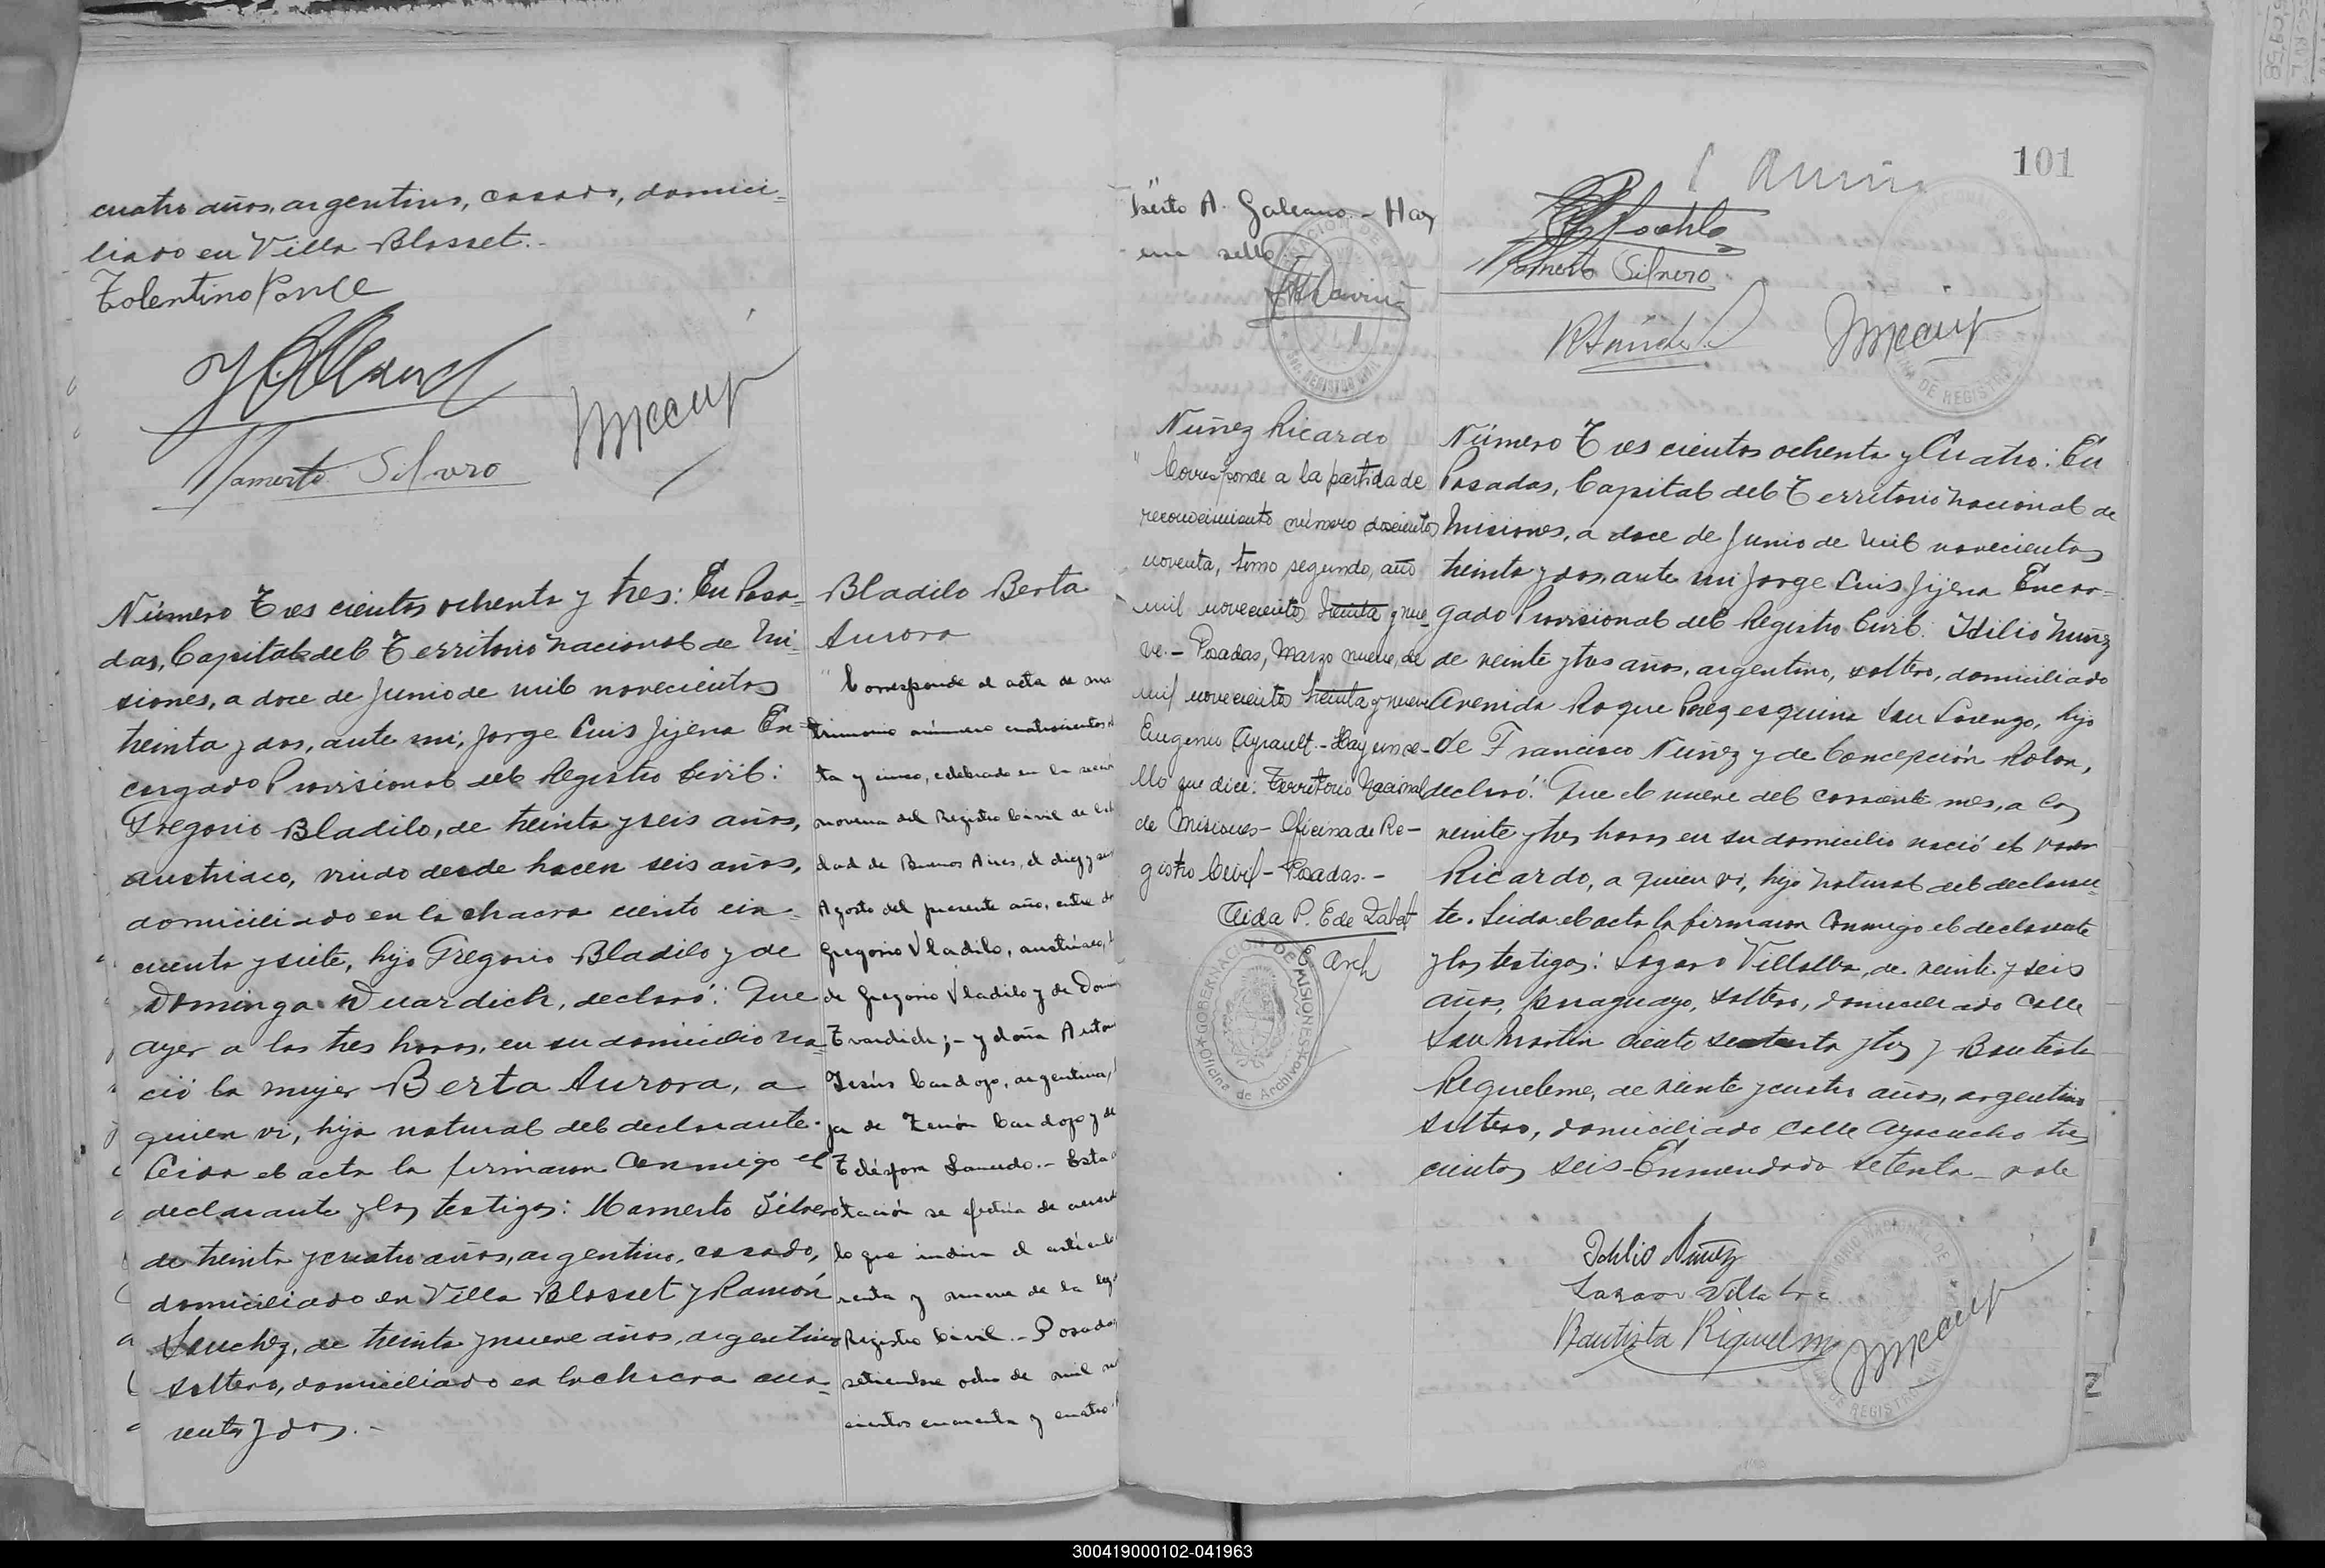 cuatro años, argentino, casado, domici=
liado en Villa Blosset.-
Tolentino Ponce
Mamerto Silvero
Número Tres cientos ochenta y tres: En Posa=
das, Capital del Territorio Nacional de Mi=
siones, a doce de Junio de mil novecientos
treinta y dos, ante mi, Jorge Luis Jijena En=
cargado Provisional del Registro Civil:
Gregorio Bladilo, de treinta y seis años,
austriaco, viudo desde hacen seis años,
domiciliado en la chacra ciento cin=
cuenta y siete, hijo Gregorio Bladilo y de
Dominga Wuardich, declaró: Que
ayer a las tres horas, en su domicilio na=
ció la mujer Berta Aurora, a
quien vi, hija natural del declarante.
Leida el acta la firmaron conmigo el
declarante y los testigos: Mamerto Silvero
de treinta y cuatro años, argentino, casado,
domiciliado en Villa Blosset y Ramón
Sanchez, de treinta y nueve años, argentino
soltero, domiciliado en la chacra cua=
renta y dos.-
Bladilo Berta
Aurora
"Corresponde al acta de ma
trimonio número cuatrocientos
ta y cinco, celebrado en la sección
novena del Registro Civil de la
dad de Buenos Aires, el diez y
Agosto del presente año, entre don
Gregorio Vladilo, austriaco,
de Gregorio Vladilo y de Domin
Tvardich; - y doña Anton
Jesús Cardozo, argentina,
ja de Zenón Cardozo y de
Telésfora Sanudo.- Esta
tación se efectúa de acuerdo
lo que indica el artículo
renta y nueve de la ley
Registro Civil.- Posadas
setiembre ocho de mil no
cientos cuarenta y cuatro.
101
berto A. Galeano.- Hay
un sello
Mamerto Silvero
RSánchez
Nuñez Ricardo
"Corresponde a la partida de
reconocimiento número doscientos
noventa, tomo segundo, año
mil novecientos treinta y nue=
ve.- Posadas, Marzo nueve, de
mil novecientos treinta y nueve
Eugenio Ayrault.- Hay un se-
llo que dice: Territorio Nacional
de Misiones - Oficina de Re-
gistro Civil - Posadas.-
Aida P. E de Zabat
E. Arch
GOBERNACION DE MISIONES
Oficina de Archivo
Número Tres cientos ochenta y Cuatro: En
Posadas, Capital del Territorio Nacional de
Misiones, a doce de Junio de mil novecientos
treinta y dos, ante mi Jorge Luis Jijena Encar=
gado Provisional del Registro Civil: Idilio Nuñez
de veinte y tres años, argentino, soltero, domiciliado
Avenida Roque Perez esquina San Lorenzo, hijo
de Francisco Nuñez y de Concepción Rolon,
declaró: Que el nueve del corriente mes, a las
veinte y tres horas en su domicilio nació el varon
Ricardo, a quien vi, hijo natural del declaran=
te. Leida el acta la firmaron conmigo el declarante
y los testigos: Lazaro Villalba, de veinte y seis
años, paraguayo, soltero, domiciliado calle
San Martin ciento setenta y tres y Bautista
Requelme, de veinte y cuatro años, argentino
soltero, domiciliado calle Ayacucho tres
cientos seis - Enmendado setenta - vale
Idilio Nuñez
Lazaro Villalba
Bautista Riquelme
300419000102-041963